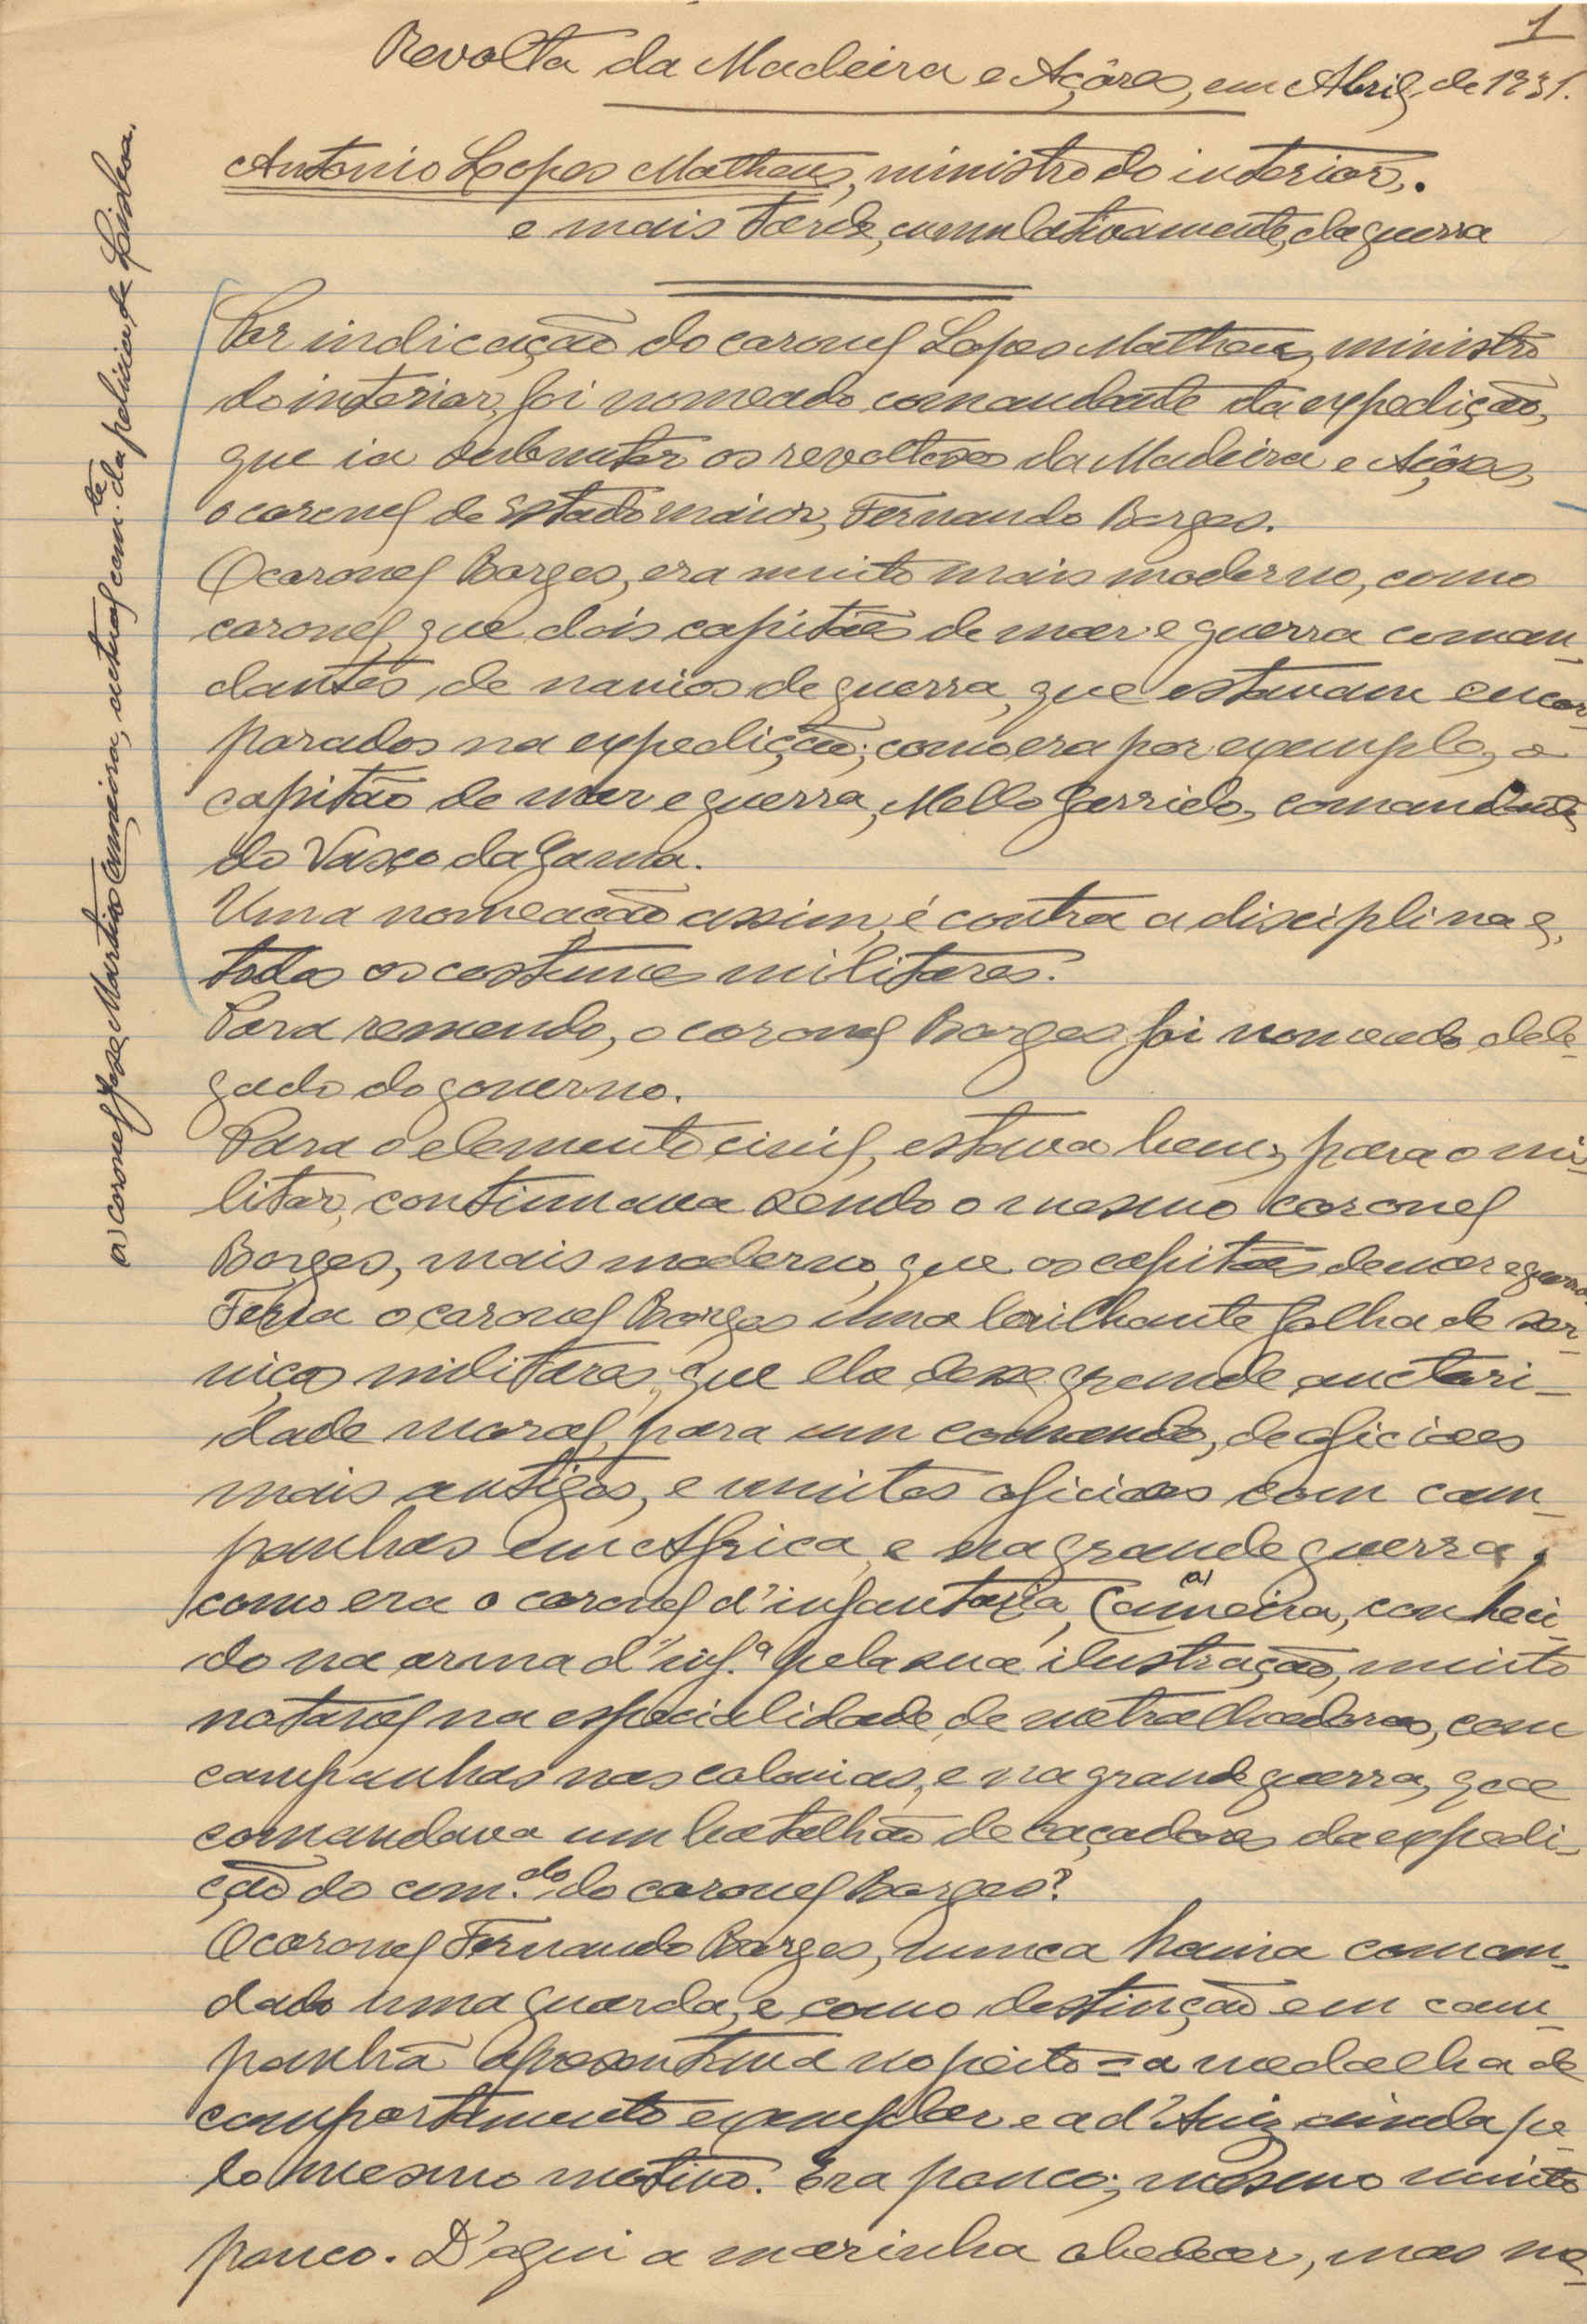 1
Revolta da Madeira e Açôres, em Abril de 1931.
Antonio Lopes Matheus, ministro do interior,.
e mais tarde, cumulativamente, da guerra
Por indicação do coronel Lopes Matheus, ministro
do interior, foi nomeado comandante da expedição,
que ia submeter os revoltosos da Madeira e Açôres,
o coronel de Estado maior, Fernando Borges.
O coronel Borges, era muito mais moderno, como
coronel, que dois capitães de mar e guerra coman-
dantes de navios de guerra, que estavam encor-
porados na expedição; como era por exemplo, o
capitão de mar e guerra, Mello Garrido, comandante
do Vasco da Gama.
Uma nomeação assim, é contra a disciplina e,
todos os costumes militares.
Para remendo, o coronel Borges foi nomeado dele-
gado do governo.
Para o elemento civil, estava bem; para o mi-
litar, continuava sendo o mesmo coronel
Borges, mais moderno, que os capitães de mar e guerra.
Teria o coronel Borges uma brilhante folha de ser-
viços militares, que lhe desse grande auctori-
dade moral, para um comando, de oficiaes
mais antigos, e muitos oficiaes com cam-
panhas em Africa, e na grande guerra,
como era o coronel d'infantaria, (a) Cameira, conheci-
do na arma d'inf.ª pela sua ilustração, muito
notavel na especialidade de metralhadoras, com
campanhas nas colonias, e na grande guerra, que
comandava um batalhão de caçadores da expedi-
ção do com.do do coronel Borges?
O coronel Fernando Borges, nunca havia coman-
dado uma guarda, e como destinção em cam-
panha apresentava no peito = a medalha de
comportamento exemplar e a d'Aviz ainda pe-
lo mesmo motivo. Era pouco; mesmo muito
pouco. D'aqui a marinha obedecer, mas na-
a) coronel José Martins Cameira, actual com.te da policia de Lisboa.